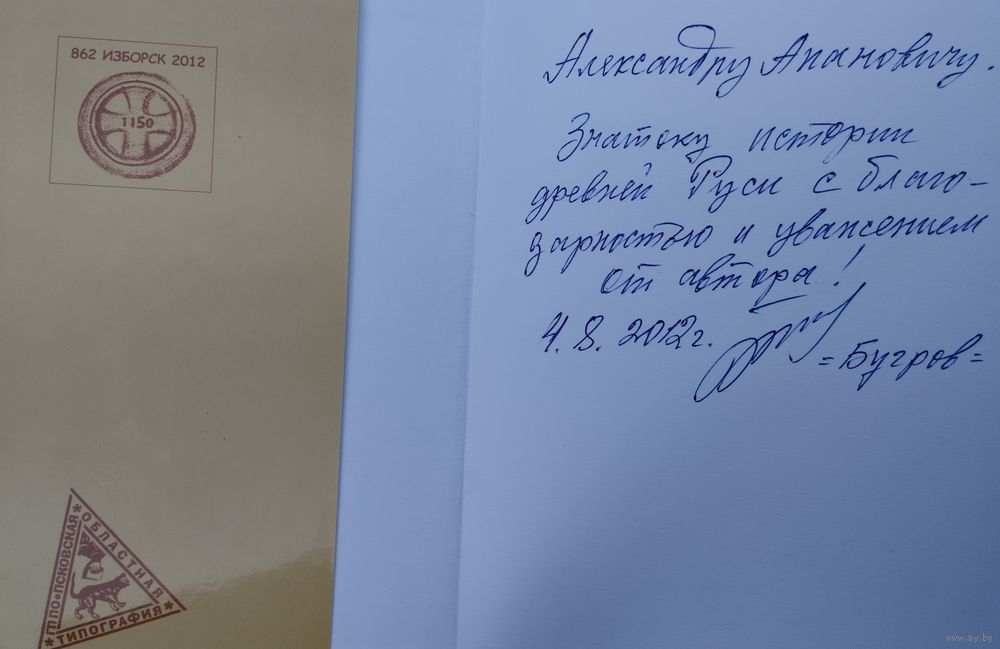 862 ИЗБОРСК 2012
1150
ГППО*ПСКОВСКАЯ
*ОБЛАСТНАЯ
*ТИПОГРАФИЯ*
Александру Апановичу.
Знатоку истории
древней Руси с благо-
дарностью и уважением
от автора!
4.8.2012г.
=Бугров=
www.ay.by